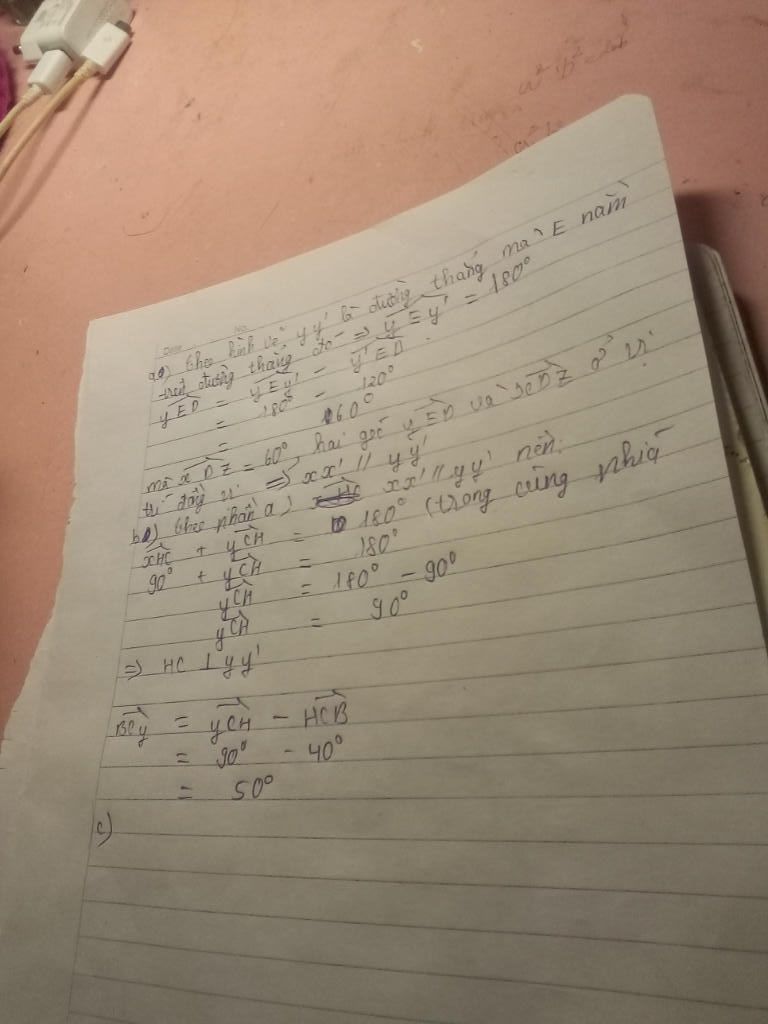 a² b² = 2ab
Date No.
a) theo hình vẽ, yy' là đường thẳng mà E nằm
trên đường thẳng đó ⇒ yEy' = 180°
yED = yEy' - y'ED
= 180° - 120°
= 60°
mà xDZ = 60°, hai góc yED và xDZ ở vị
trí đồng vị ⇒ xx' // yy'
b) theo phần a) xx' // yy' nên:
xHC + yCH = 180° (trong cùng phía
90° + yCH = 180°
yCH = 180° - 90°
yCH = 90°
⇒ HC ⊥ yy'
BCy = yCH - HCB
= 90° - 40°
= 50°
c)